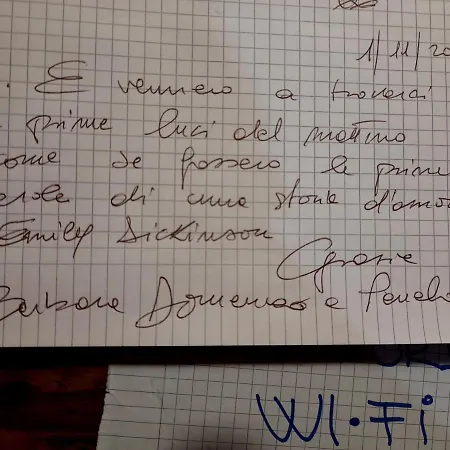 1/11/20
. E vennero a trovarci
prime luci del mattino
come se fossero le prime
parole di una storia d'amor
Emily Dickinson
Grazie
Barbara Domenico e
WI.Fi